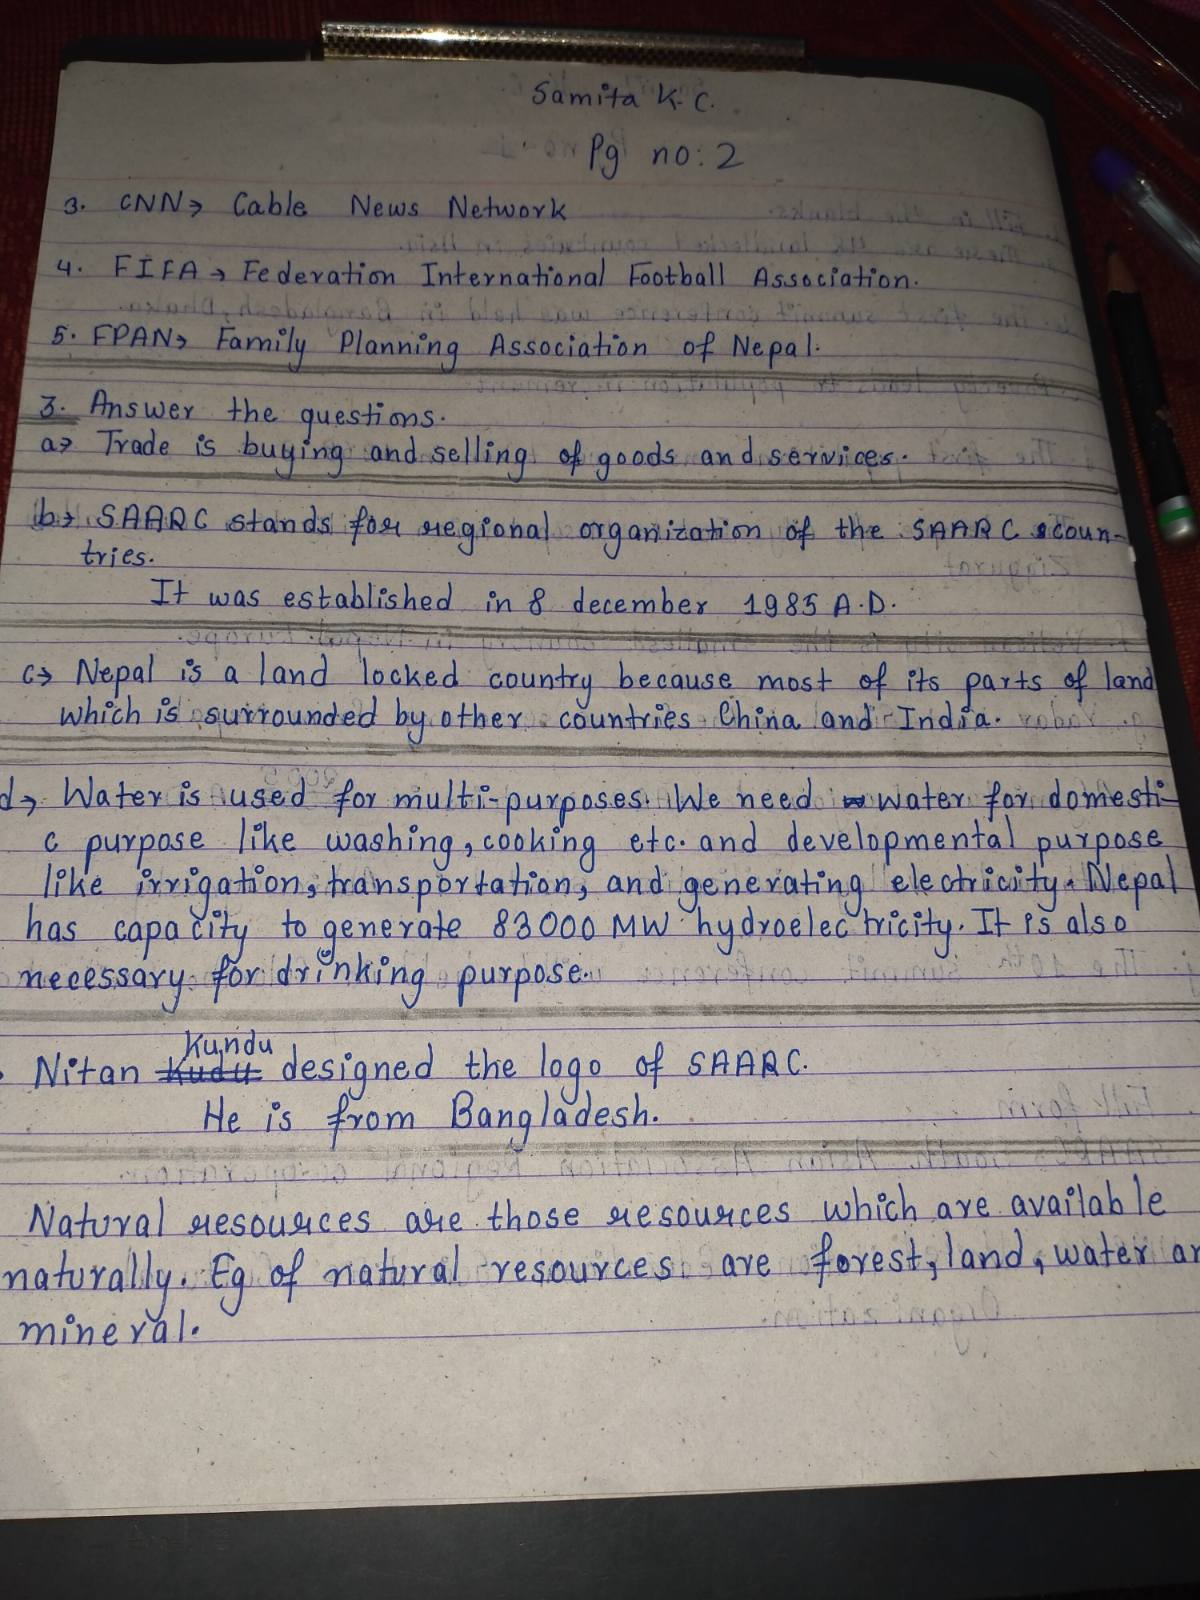 Samita K.C.
Pg no: 2
3. CNN → Cable News Network
4. FIFA → Federation International Football Association.
5. FPAN → Family Planning Association of Nepal.
3. Answer the questions.
a→ Trade is buying and selling of goods and services.
b→ SAARC stands for regional organization of the SAARC coun-
tries.
It was established in 8 december 1985 A.D.
c→ Nepal is a land locked country because most of its parts of land
which is surrounded by other countries China and India.
d→ Water is used for multi-purposes. We need water for domesti-
c purpose like washing, cooking etc. and developmental purpose
like irrigation, transportation, and generating electricity. Nepal
has capacity to generate 83000 MW hydroelectricity. It is also
necessary for drinking purpose.
Nitan Kundu designed the logo of SAARC.
He is from Bangladesh.
Natural resources are those resources which are available
naturally. Eg of natural resources are forest, land, water
mineral.